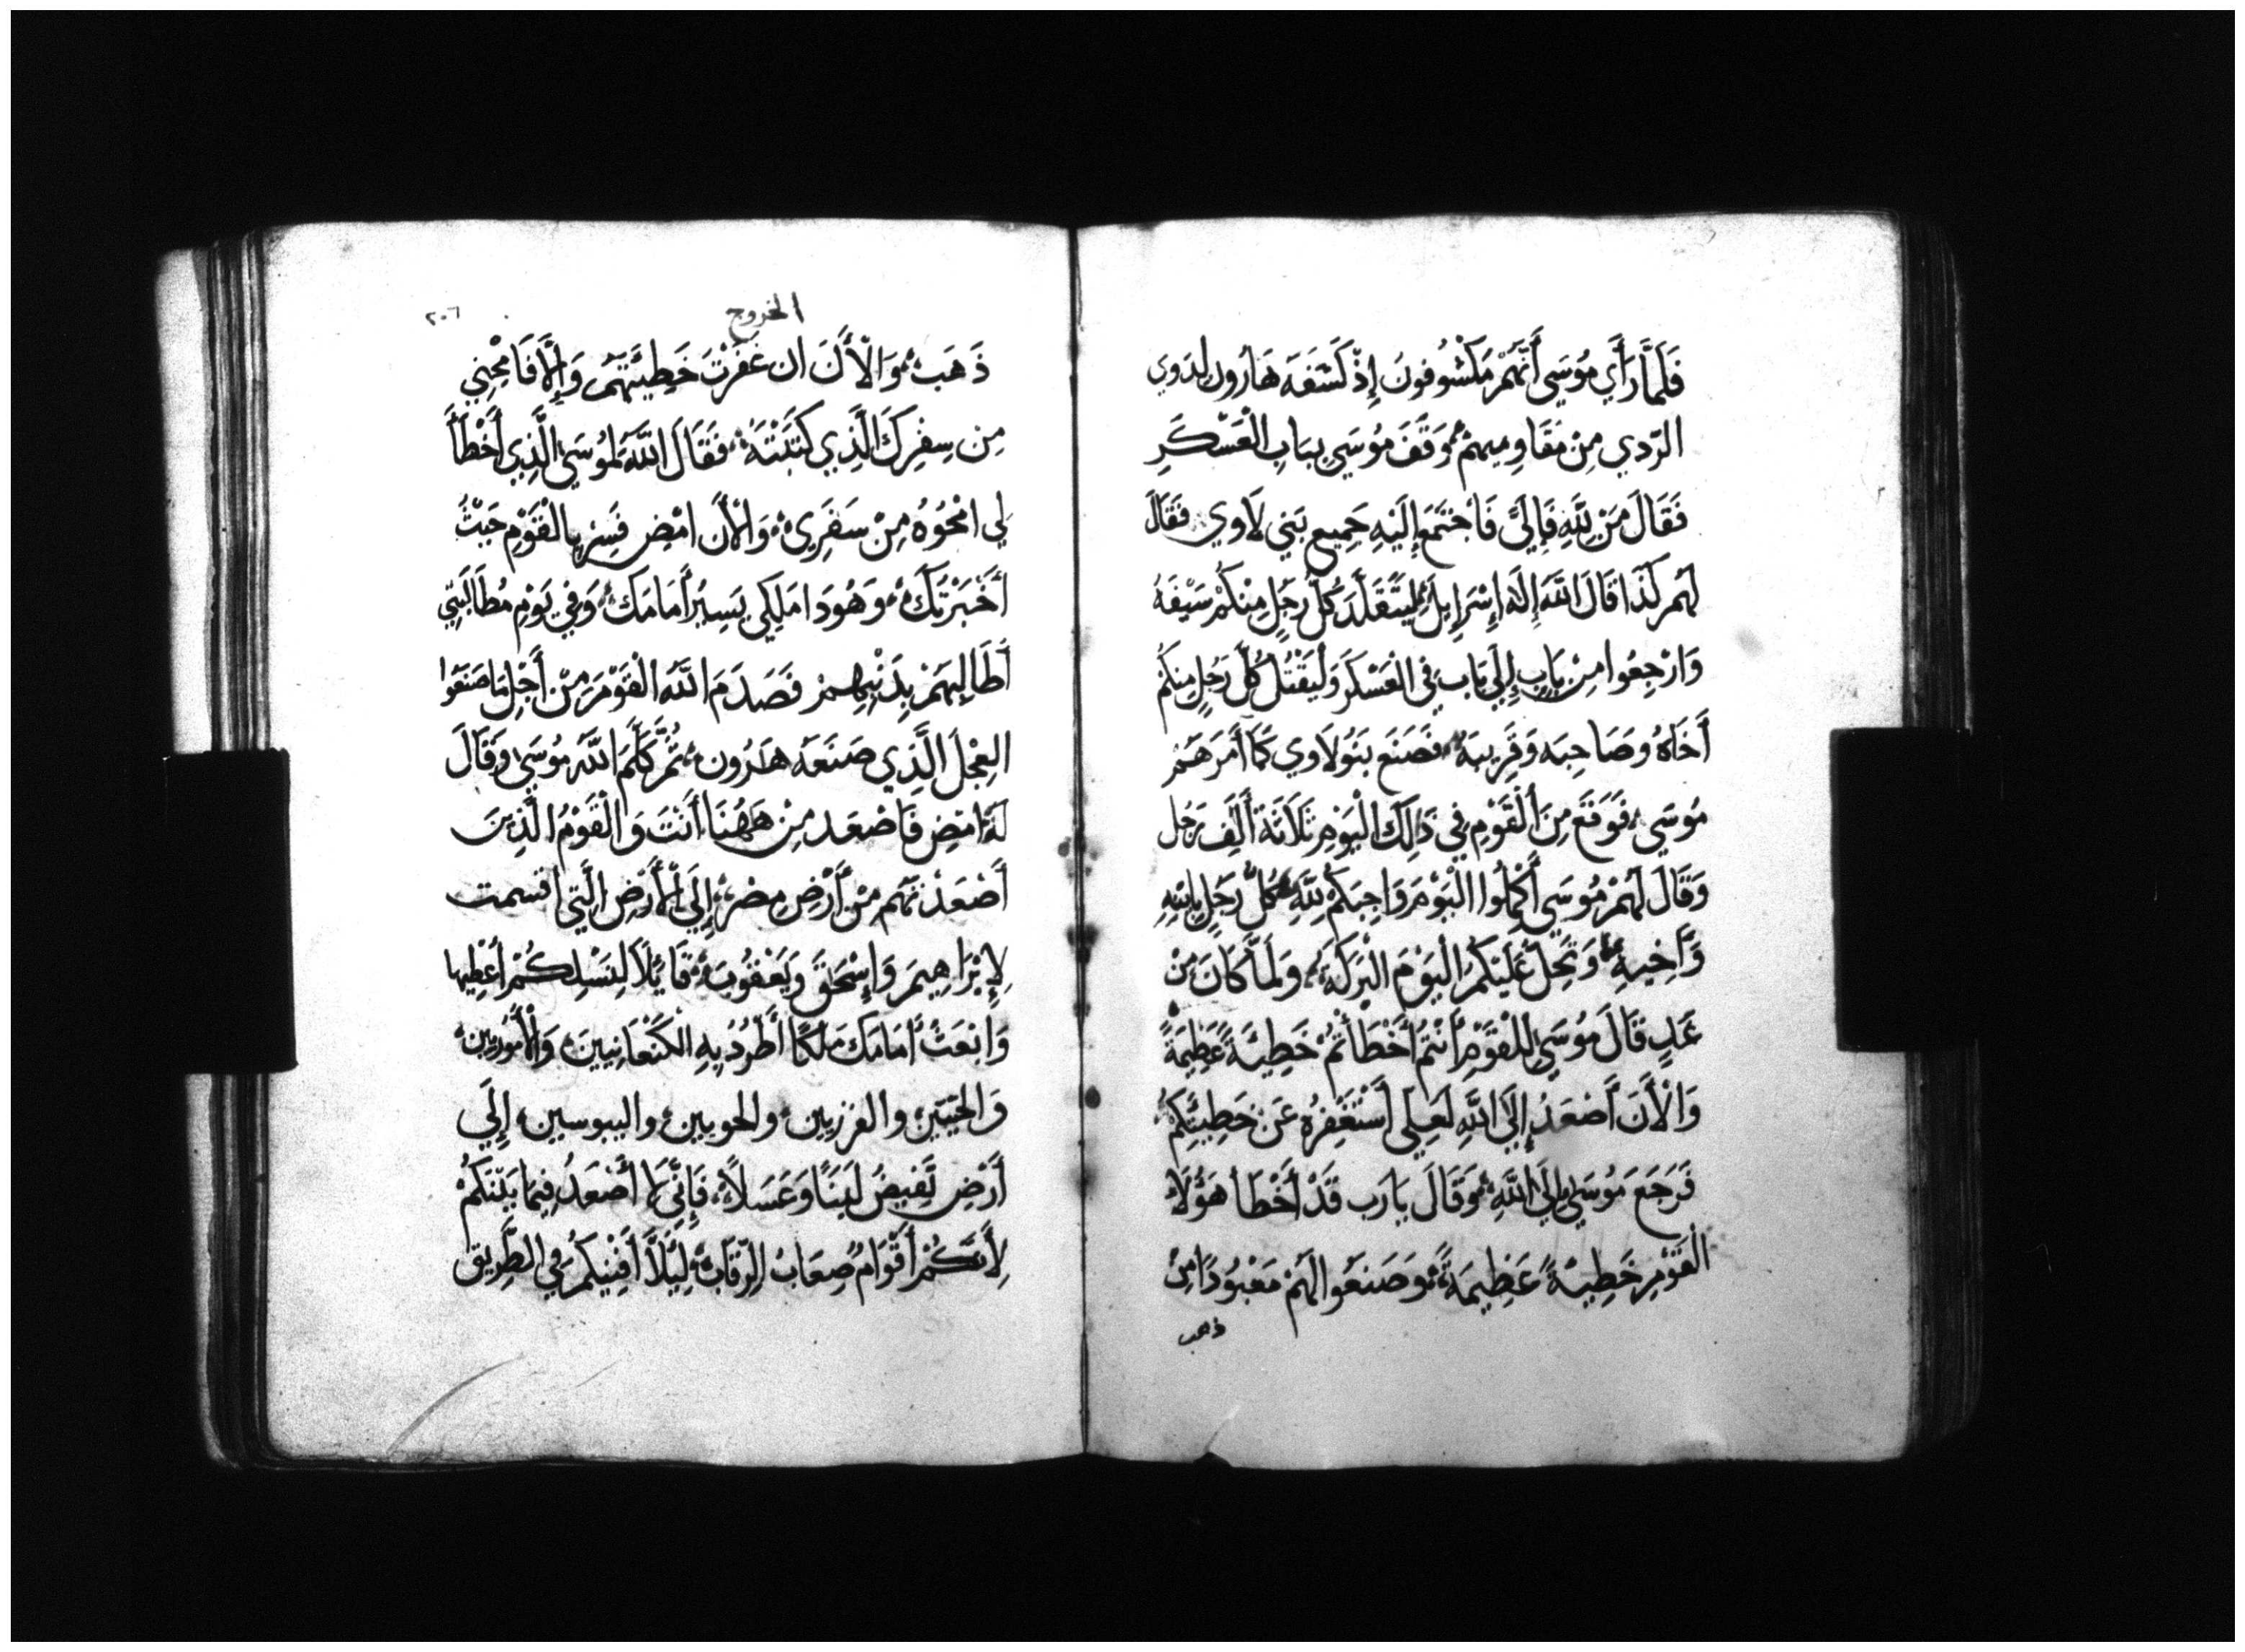 فَلَمَّا رَأَي مُوسَي أَنَّهُمْ مَكْشُوفونَ إِذْ كَشَفَهَ هَارُون لِدَوي
الرّدي مِنْ مَقَاوِميهمْ وَقَفَ مُوسَي بِبَابِ الْعَسْكَرِ
فَقَالَ مَن لِلَّهِ فَإِلَيَّ فَاجْتَمَع إِلَيْهِ جَمِيع بَني لَاوي فقَالَ
لَهُم كَذَا قَالَ اللَّه إِلَهُ إِسْرَايِلَ لِيَتَقَلَّدَ كُلّ رَجُلٍ مِنْكُمْ سَيْفَهُ
وَارْجِعُوا مِنْ بَابٍ إِلَي بَاب فِي الْعَسْكَر وَلْيَقْتُل كُلّ رَجُلٍ مِنكُم
أَخَاهُ وصَاحِبَه وَقَرِيبَهُ فَصَنَع بَنُو لَاوي كَمَا أَمَرَهُمْ
مُوسَي فَوَقَعَ مِنَ الْقَوْمِ فِي ذَالِكَ الْيَوْمِ ثَلَاثَة أَلَف رَجُل
وَقَالَ لَهُمْ مُوسَي أَكْمِلُوا الْيَوْمَ وَاجِبَكُمْ لِلَّهِ كُلّ رَجُلٍ بِابْنِهِ
وَأَخِيهِ وَتَحِلّ عَلَيْكُم الْيَوْمَ الْبَرَكَة وَلَمَّا كَانَ مِنْ
غَدٍ قَالَ مُوسَي لِلْقَوْمِ أَنْتُمْ أَخْطَأْتُمْ خَطِيَةً عَظِيمَةً
وَالْأَنَ أَصْعَدُ إِلَى اللَّهِ لَعِلي أَسْتَغْفِرُه عَن خَطِيَّتِكُمْ
فَرَجَعَ مُوسَي إِلَى اللَّهِ وَقَالَ يَارَب قَدْ أَخْطَا هَؤُلَاءِ
الْقَوْمِ خَطِيَةً عَظِيمَةً وَصَنَعُوا لَهُمْ مَعْبُودًا مِنْ
ذهب
الخروج
٢٠٦
ذَهَبٍ وَالْأَنَ ان غَفَرْتَ خَطِيَّتَهُمْ وَإِلَّا فَامْحُنِي
مِن سِفْرِكَ الَّذِي كَتَبْتَهُ فَقَالَ اللَّه لِمُوسَي الَّذِي أَخْطَأَ
لِي امْحُوهُ مِنْ سَفَرِي وَالْأَن امْضِ فَسِرْ بِالْقَوْمِ حَيْثُ
أَخْبَرْتُكَ وَهُوَذَا مَلِكِي يَسِيرُ أَمَامَكَ وَفِي يَوْمِ مُطَالَبَتِي
أُطَالِبهُمْ بِذَنْبِهِمْ فَصَدَمَ اللَّه الْقَوْمَ مِنْ أَجْلِ مَا صَنَعُوا
الْعِجْل الَّذِي صَنَعَه هَرُون ثُمَّ كَلَّمَ اللَّه مُوسَي وَقَالَ
لَهُ امْضِ فَاصْعَد مِنْ هَهُنَا أَنْتَ وَالْقَوْمُ الَّذِينَ
أَصْعَدْتَهُم مِنْ أَرْضِ مِصْرَ إِلَي الْأَرْضِ الَّتِي اقسمت
لِإِبْرَاهِيمَ وَإِسْحَقَ وَيَعْقُوبَ قَايِلًا لِنَسْلِكُمْ أُعْطِيها
وَابْعَثُ أَمَامَكَ مَلَكًا أَطْرُدُ بِهِ الْكَنْعَانِيينَ وَالْأَمُورِيين
وَالحِيّتين والفرزيين والحويين واليبوسين إِلَي
أَرْضٍ تَفِيضُ لَبَنًا وَعَسَلًا فَإِنِّي لَا أَصْعَدُ فِيمَا بَيْنَكُمْ
لِأَنَّكُمْ أَقْوَامٌ صِعَابُ الرِّقَابِ لِيَلَّا أُفْنِيكُمْ فِي الطَّرِيق